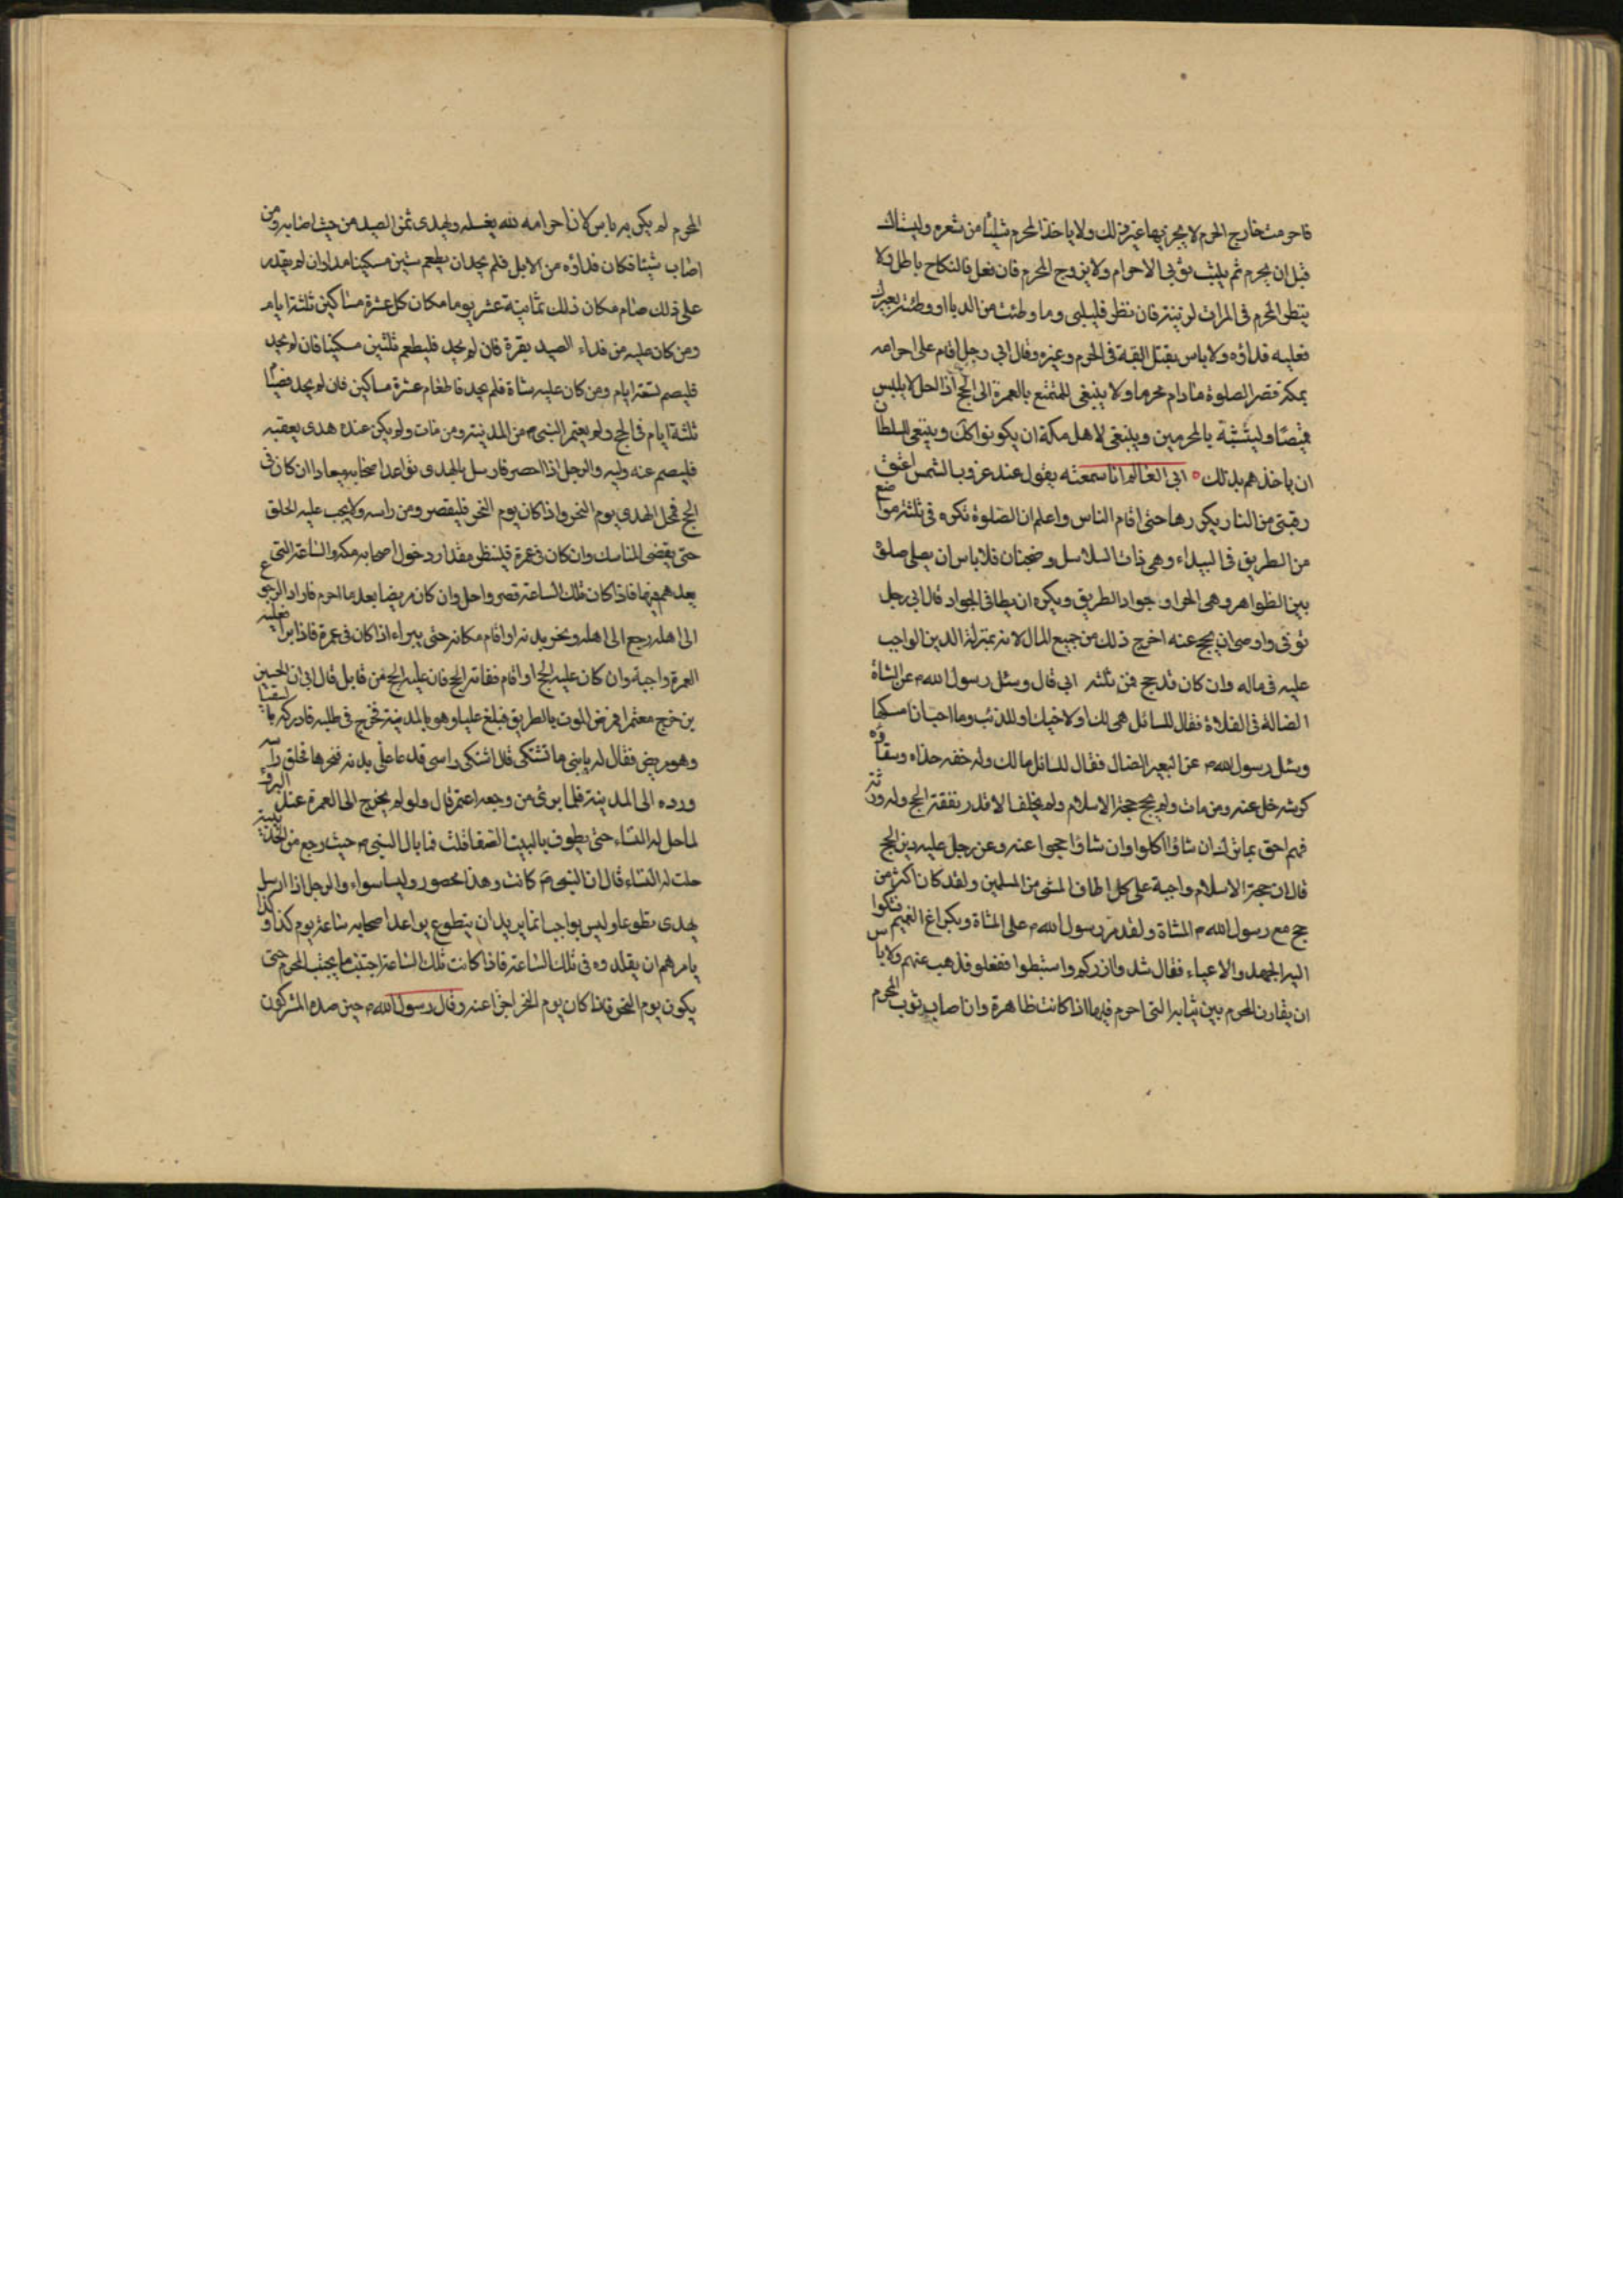 فاحرمت خارج الحرم لا يجزيها غير ذلك ولا ياخذ المحرم شيئا من شعره وليستاك
قبل ان يحرم ثم يلبس ثوبي الاحرام ولا يزوج المحرم فان فعل فالنكاح باطل ولا
ينظر المحرم في المراة لزينة فان نظر فليلبى وما وطئت من الدبا او وطئته بعيرك
فعليه فداؤه ولا باس بقتل البقة في الحرم وغيره وقال ابي رجل اقام على احرامه
بمكة قصر الصلوة ما دام محرما ولا ينبغى للمتمتع بالعمرة الى الحج اذا احل الا يلبس
قميصا وليتشبه بالمحرمين وينبغى لاهل مكة ان يكونوا كك وينبغى للسلطان
ان ياخذهم بذلك ابي العالم انا سمعته يقول عند غروب الشمس اعتق
رقبتى من النار يكررها حتى اقام الناس واعلم ان الصلوة تكره في ثلثة مواضع
من الطريق في البيداء وهي ذات السلاسل وضجنان فلا باس ان يصلى صلوة
بين الظواهر وهي الجواد جواد الطريق ويكره ان يطا في الجواد قال ابي رجل
توفى واوصى ان يحج عنه اخرج ذلك من جميع المال لانه بمنزلة الدين الواجب
عليه في ماله وان كان قد حج فمن ثلثه ابي قال وسئل رسول الله ص عن الشاة
الضالة في الفلاة فقال للسائل هي لك او لاخيك او للذئب وما احب ان امسكها
وسئل رسول الله ص عن البعير الضال فقال للسائل ما لك وله خفه حذاه وسقاؤه
كرشه خل عنه ومن مات ولم يحج حجة الاسلام ولم يخلف الا قدر نفقة الحج وله ورثة
فهم احق بما ترك ان شاؤا اكلوا وان شاؤا حجوا عنه وعن رجل عليه دين الحج
قال ان حجة الاسلام واجبة على كل اطاق المشى من المسلمين ولقد كان اكثر من
حج مع رسول الله ص المشاة ولقد مر رسول الله ص على المشاة وبكراع الغميم فشكوا
اليه الجهد والاعياء فقال شدوا ازركم واستبطوا ففعلو فذهب عنهم ولا باس
ان يقارن المحرم بين ثيابه التى احرم فيها اذا كانت ظاهرة وان اصاب ثوب المحرم
المحرم لم يكن به باس لان احرامه لله يغسله ويهدى ثمن الصيد من حيث اصابه ومن
اصاب شيئا فكان فداؤه من الابل فلم يجد ان يطعم ستين مسكينا مدا وان لم يقدر
على ذلك صام مكان ذلك ثمانية عشر يوما مكان كل عشرة مساكين ثلثة ايام
ومن كان عليه من فداء الصيد بقرة فان لم يجد فليطعم ثلثين مسكينا فان لم يجد
فليصم تسعة ايام ومن كان عليه شاة فلم يجد فاطعام عشرة مساكين فان لم يجد فصيام
ثلثة ايام في الحج ولم يعتمر النبي ص من المدينة ومن مات ولم يكن عنده هدى يعقبه
فليصم عنه وليه والرجل اذا احصر فارسل بالهدى تواعد اصحابه ميعادا ان كان في
الحج فمحل الهدى يوم النحر واذا كان يوم النحر فليقصر ومن راسه ولا يجب عليه الحلق
حتى يقضى المناسك وان كان في عمرة فلينظر مقدار دخول اصحابه مكة والساعة التى
يعدهم فيها فاذا كان تلك الساعة قصر واحل وان كان مريضا بعد ما احرم فاراد الرجوع
الى اهله رجع الى اهله ونحر بدنة او اقام مكانه حتى يبراء اذا كان في عمرة فاذا برا فعليه
العمرة واجبة وان كان عليه الحج او اقام ففاته الحج فان عليه الحج من قابل قال ابي ان الحسين
بن خرج معتمرا فمرض الموت بالطريق فبلغ عليا وهو بالمدينة فخرج في طلبه فادركه بالسقيا
وهو مريض فقال له يا بنى ما تشتكى قد اشتكى راسى فدعا على بدنة فنحرها فحلق راسه
ورده الى المدينة فلما برئ من وجعه اعتمر قال ولو لم يخرج الى العمرة عند البرؤ
لما حل له النساء حتى يطوف بالبيت الصفا قلت فما بال النبي ص حيث رجع من الحديبية
حلت له النساء قال ان النبي ص كانت وهذا محصور وليسا سواء والرجل اذا ارسل
يهدى تطوعا وليس بواجب انما يريد ان يتطوع يواعد اصحابه ساعة يوم كذا وكذا
يامرهم ان يقلدوه في تلك الساعة فاذا كانت تلك الساعة اجتنب ما يجتنب المحرم حتى
يكون يوم النحر فاذا كان يوم النحر اجزا عنه وقال رسول الله ص حين صده المشركون